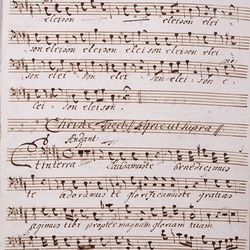 eleison elei
son eleison eleison eleison elei
son eleison eleison eleison e
lei son eleison.
Christe tacet Kyrie ut supra
Andant:
Et in terra Laudamus te benedicimus
te adoramus te glorificamus te gratias
agimus tibi propter magnam gloriam tuam